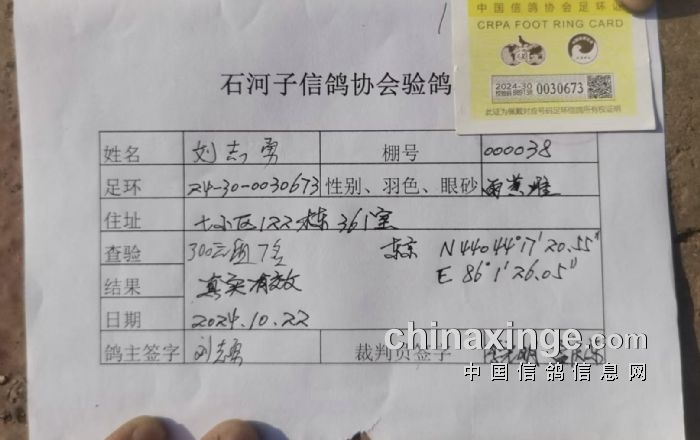 中国信鸽协会足环证
CRPA FOOT RING CARD
2024-30
0030673
此证为佩戴对应号码足环信鸽所有权证明
石河子信鸽协会验鸽
姓名 刘志勇 棚号 000038
足环 24-30-0030673 性别、羽色、眼砂 雨黄雄
住址 七小区122栋361室
查验 300公里7名 N 44044°17′20.55″
E 86°1′26.05″
结果 真实有效
日期 2024.10.22
鸽主签字 刘志勇 裁判员签字
chinaxinge.com
中国信鸽信息网